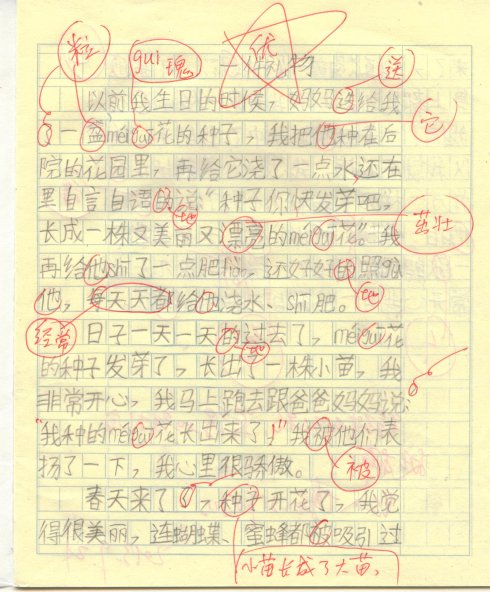 一件礼物
优
粒
gui 瑰
送
以前我生日的时候，妈妈送给我
了一盒méi gui花的种子，我把他种在后
它
院的花园里，再给它浇了一点水，还在
里自言自语的说“种子你快发芽吧，
地
长成一株又美丽又漂亮的méi gui花”。我
茁壮
再给他shī了一点肥，还好好的照顾
地
他，每天天都给他浇水、shī肥。
经常
日子一天一天的过去了，méi gui花
地
的种子发芽了，长出了一株小苗，我
非常开心，我马上跑去跟爸爸妈妈说：
“我种的méi gui花长出来了！”我被他们表
扬了一下，我心里很骄傲。
被
春天来了，种子开花了，我觉
得很美丽，连蝴蝶、蜜蜂都被吸引过
小苗长成了大苗。